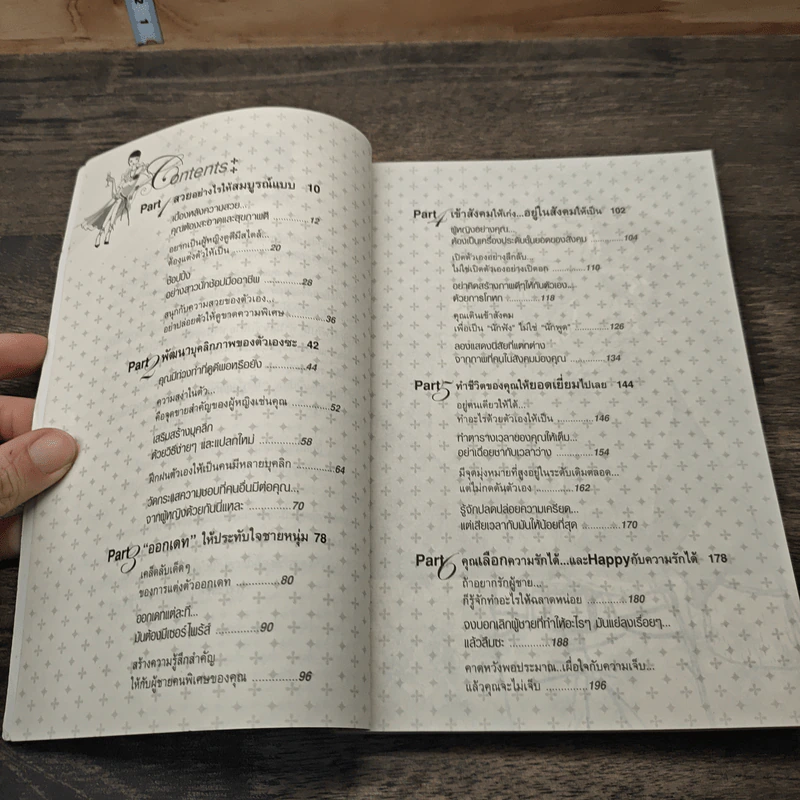 2 1
Contents
Part 1 สวยอย่างไรให้สมบูรณ์แบบ 10
เบื้องหลังความสวย...
คุณต้องสะอาดและสุขภาพดี ............12
อยากเป็นผู้หญิงดูดีมีสไตล์...
ต้องแต่งตัวให้เป็น ............20
ช้อปปิ้ง
อย่างสาวนักช้อปมืออาชีพ ............28
สนุกกับความสวยของตัวเอง...
อย่าปล่อยตัวให้ดูขาดความพิเศษ ............36
Part 2 พัฒนาบุคลิกภาพของตัวเองซะ 42
คุณมีท่วงท่าที่ดูดีพอหรือยัง ............44
ความสง่าในตัว...
คือจุดขายสำคัญของผู้หญิงเช่นคุณ ............52
เสริมสร้างบุคลิก
ด้วยวิธีง่ายๆ และแปลกใหม่ ............58
ฝึกฝนตัวเองให้เป็นคนมีหลายบุคลิก ............64
วัดกระแสความชอบที่คนอื่นมีต่อคุณ...
จากผู้หญิงด้วยกันนี่แหละ ............70
Part 3 "ออกเดท" ให้ประทับใจชายหนุ่ม 78
เคล็ดลับเด็ดๆ
ของการแต่งตัวออกเดท ............80
ออกเดทแต่ละที...
มันต้องมีเซอร์ไพรส์ ............90
สร้างความรู้สึกสำคัญ
ให้กับผู้ชายคนพิเศษของคุณ ............96
Part 4 เข้าสังคมให้เก่ง...อยู่ในสังคมให้เป็น 102
ผู้หญิงอย่างคุณ...
ต้องเป็นเครื่องประดับชั้นยอดของสังคม ............104
เปิดตัวเองอย่างลึกลับ...
ไม่ใช่เปิดตัวเองอย่างเปิดอก ............110
อย่าคิดสร้างภาพดีๆให้กับตัวเอง...
ด้วยการโกหก ............118
คุณเดินเข้าสังคม
เพื่อเป็น "นักฟัง" ไม่ใช่ "นักพูด" ............126
ลองแสดงนิสัยที่แตกต่าง
จากภาพที่คนในสังคมมองคุณ ............134
Part 5 ทำชีวิตของคุณให้ยอดเยี่ยมไปเลย 144
อยู่คนเดียวให้ได้...
ทำอะไรด้วยตัวเองให้เป็น ............146
ทำตารางเวลาของคุณให้เต็ม...
อย่าเฉื่อยชากับเวลาว่าง ............154
มีจุดมุ่งหมายที่สูงอยู่ในระดับเดิมตลอด...
แต่ไม่กดดันตัวเอง ............162
รู้จักปลดปล่อยความเครียด...
แต่เสียเวลากับมันให้น้อยที่สุด ............170
Part 6 คุณเลือกความรักได้...และHappyกับความรักได้ 178
ถ้าอยากรักผู้ชาย...
ก็รู้จักทำอะไรให้ฉลาดหน่อย ............180
จงบอกเลิกผู้ชายที่ทำให้อะไรๆ มันแย่ลงเรื่อยๆ...
แล้วลืมซะ ............188
คาดหวังพอประมาณ..เผื่อใจกับความเจ็บ...
แล้วคุณจะไม่เจ็บ ............196